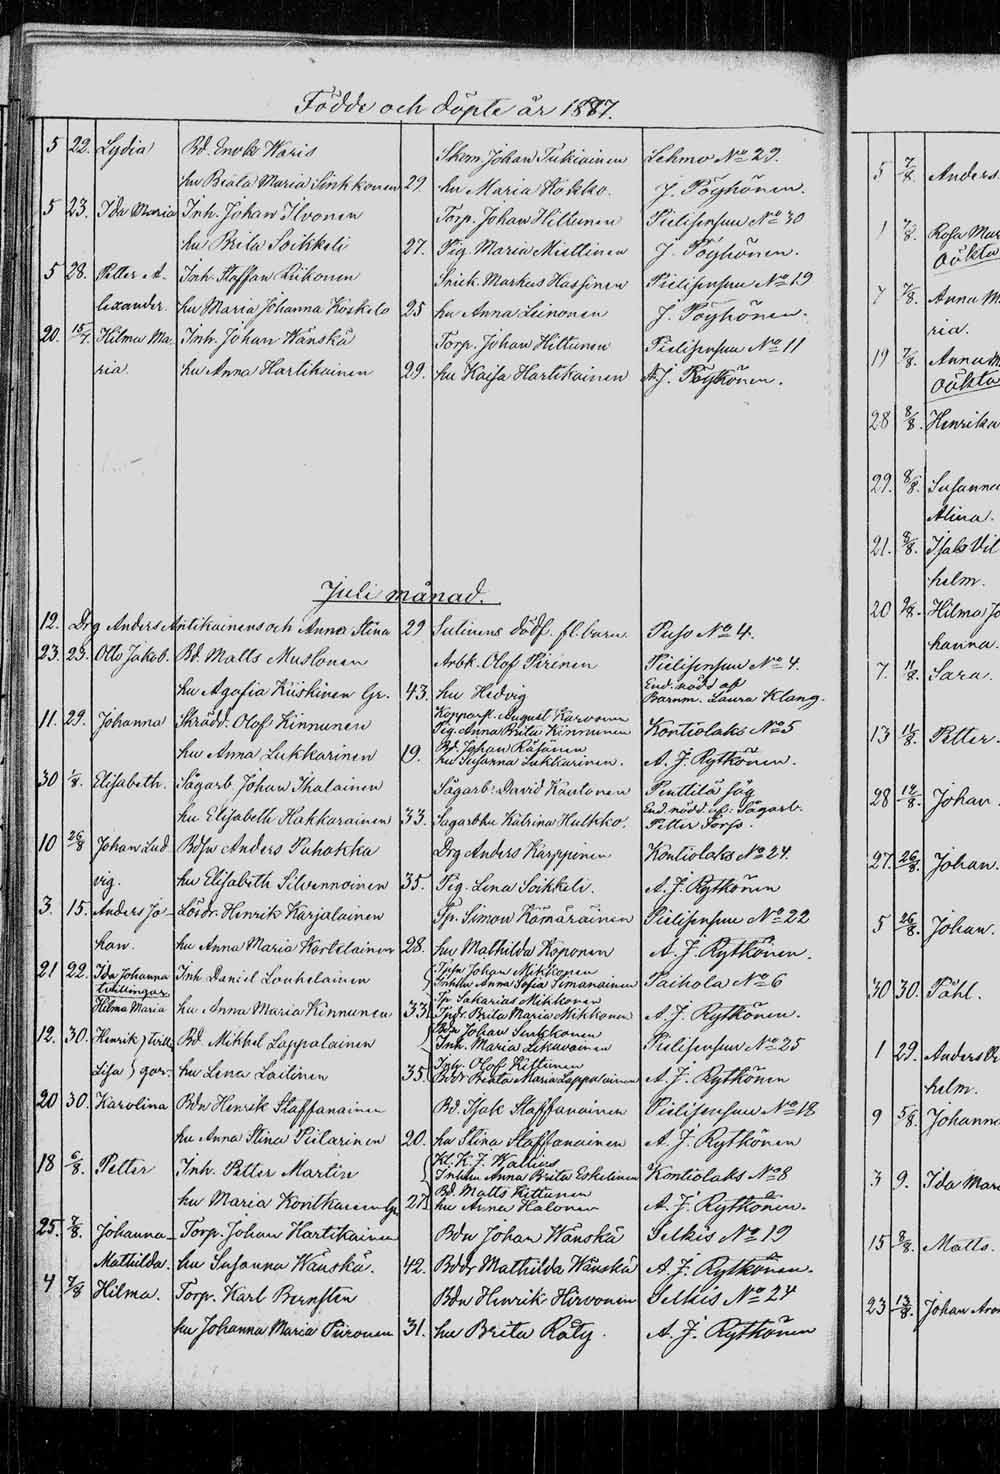 Födde och döpte år 1887.
5 22. Lydia Bd. Enok Waris Skom. Johan Tukiainen Lehmo No 29.
hu Beata Maria Sinkkonen 29. hu Maria Kokko. J. Pöyhönen.
5 23. Ida Maria Inh. Johan Ilvonen Torp. Johan Hiltunen Pielisensuu No 30
hu Brita Soikkeli 27. Pig. Maria Miettinen J. Pöyhönen.
5 28. Petter A- Inh. Staffan Riikonen Snick. Markus Hassinen Pielisensuu No 19
lexander. hu Maria Johanna Koskelo 25 hu Anna Leinonen J. Pöyhönen.
20. 15/7. Hilma Ma- Inh. Johan Wänskä Torp. Johan Hiltunen Pielisensuu No 11
ria. hu Anna Hartikainen 29. hu Kaisa Hartikainen A. J. Pöyhönen.
Juli månad.
12. Drg Anders Antikainens och Anna Stina 29 Sutinens dödf. fl. barn. Puso No 4.
23. 23. Otto Jakob. Bd. Matts Mustonen Arbk. Olof Piirinen Pielisensuu No 4.
hu Agafia Kiiskinen Gr. 43. hu Hedvig End. nödd af
Barnm. Laura Klang.
11. 29. Johanna Skrädd. Olof Kinnunen Kopparsl. August Karvonen
Pig. Anna Brita Kinnunen Kontiolaks No 5
hu Anna Lukkarinen 19. Bd. Johan Räsänen
hu Susanna Lukkarinen. A. J. Rytkönen.
30 1/8. Elisabeth. Sågarb. Johan Ihalainen Sågarb. David Kautonen Penttilä såg
hu Elisabeth Hakkarainen 33. Sågarbhu Katrina Hulkko. End nödd af: Sågarb.
Petter Forss.
10 26/8 Johan Lud- Bdsn Anders Puhakka Drg Anders Karppinen Kontiolaks No 24.
vig. hu Elisabeth Silvennoinen 35. Pig. Lena Soikkeli. A. J. Rytkönen
3. 15. Anders Jo- Lösdr. Henrik Karjalainen Tp. Simon Kämäräinen Pielisensuu No 22
han. hu Anna Maria Kortelainen 28. hu Mathilda Koponen A. J. Rytkönen.
21 22. Ida Johanna Inh. Daniel Louhelainen Tpsn Johan Mikkonen
tvillingar Inhhu Anna Sofia Simanainen Paihola No 6
Hilma Maria hu Anna Maria Kinnunen 33 Tp Sakarias Mikkonen
Tpdr. Brita Maria Mikkonen A. J. Rytkönen.
12. 30. Henrik } tvill- Bd. Mikkel Lappalainen Bdn Johan Sinkkonen
Inh. Maria Likavainen Pielisensuu No 25
Lisa } gar. hu Lena Laitinen 35. Inh. Olof Kittunen
Bddr Beata Maria Lappalainen A. J. Rytkönen
20 30. Karolina Bdn Henrik Staffanainen Bd. Isak Staffanainen Pielisensuu No 18
hu Anna Stina Piilarinen 20. hu Stina Staffanainen A. J. Rytkönen
18 6/8. Petter Inh. Petter Martin Kl. K. J. Wallius
Inhhu Anna Brita Eskelinen Kontiolaks No 8
hu Maria Kontkanen Gr. 27. Bd. Matts Kittunen
hu Anna Halonen A. J. Rytkönen.
25. 7/8. Johanna Torp. Johan Hartikainen Bdn Johan Wänskä Selkis No 19
Mathilda. hu Susanna Wänskä. 42. Bddr Mathilda Wänskä A. J. Rytkönen.
4 7/8 Hilma. Torp. Karl Bernsten Bdn Henrik Hirvonen Selkis No 24
hu Johanna Maria Piironen 31. hu Brita Räty. A. J. Rytkönen
5 7/8. Anders
1 7/8. Rosa Mar
Oäkta
7 7/8. Anna M
ria.
19 7/8. Anna M
Oäkta
28 8/8. Henrika
29. 8/8. Susanna
Alina.
21. 8/8. Isak Vil
helm.
20 9/8. Hilma Jo
hanna.
7. 11/8. Sara.
13 11/8. Petter.
28 14/8. Johan.
27. 26/8. Johan.
5 26/8. Johan.
30 30. Påhl.
1 29. Anders
helm.
9 5/8. Johanna
3 9. Ida Mari
15 8/8. Matts.
23 13/8. Johan Aro